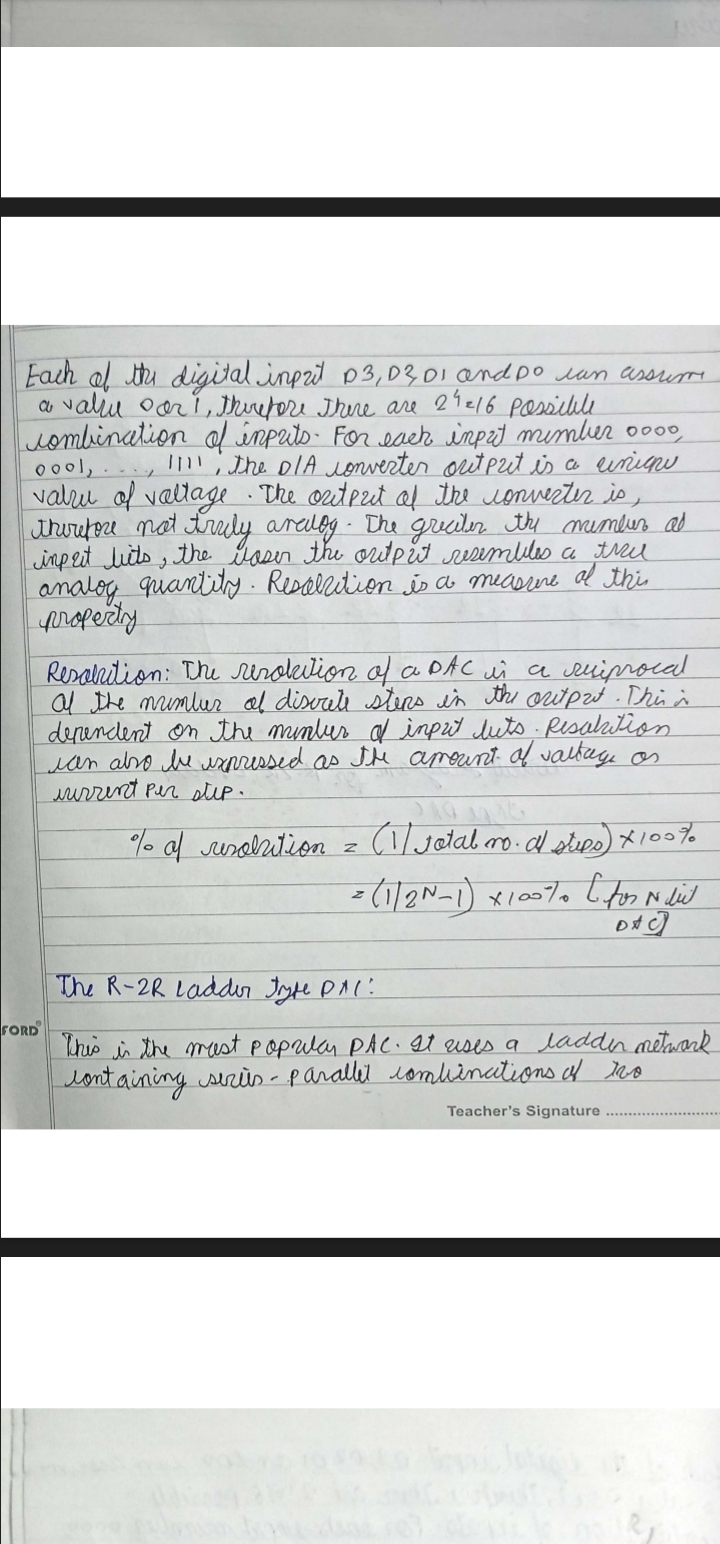 Each of the digital input D3, D2, D1 and D0 can assume
a value 0 or 1, therefore there are 2⁴=16 possible
combination of inputs. For each input number 0000,
0001, ..., 1111, the D/A converter output is a unique
value of voltage. The output of the converter is,
therefore not truly analog. The greater the number of
input bits, the closer the output resembles a true
analog quantity. Resolution is a measure of this
property
Resolution: The resolution of a DAC is a reciprocal
of the number of discrete steps in the output. This is
dependent on the number of input bits. Resolution
can also be expressed as the amount of voltage or
current per step.
% of resolution = (1/total no. of steps) ×100%
= (1/2ᴺ-1) ×100% [for N bit
DAC]
The R-2R Ladder type DAC:
FORD
This is the most popular DAC. It uses a ladder network
containing series-parallel combinations of two
Teacher's Signature ........................